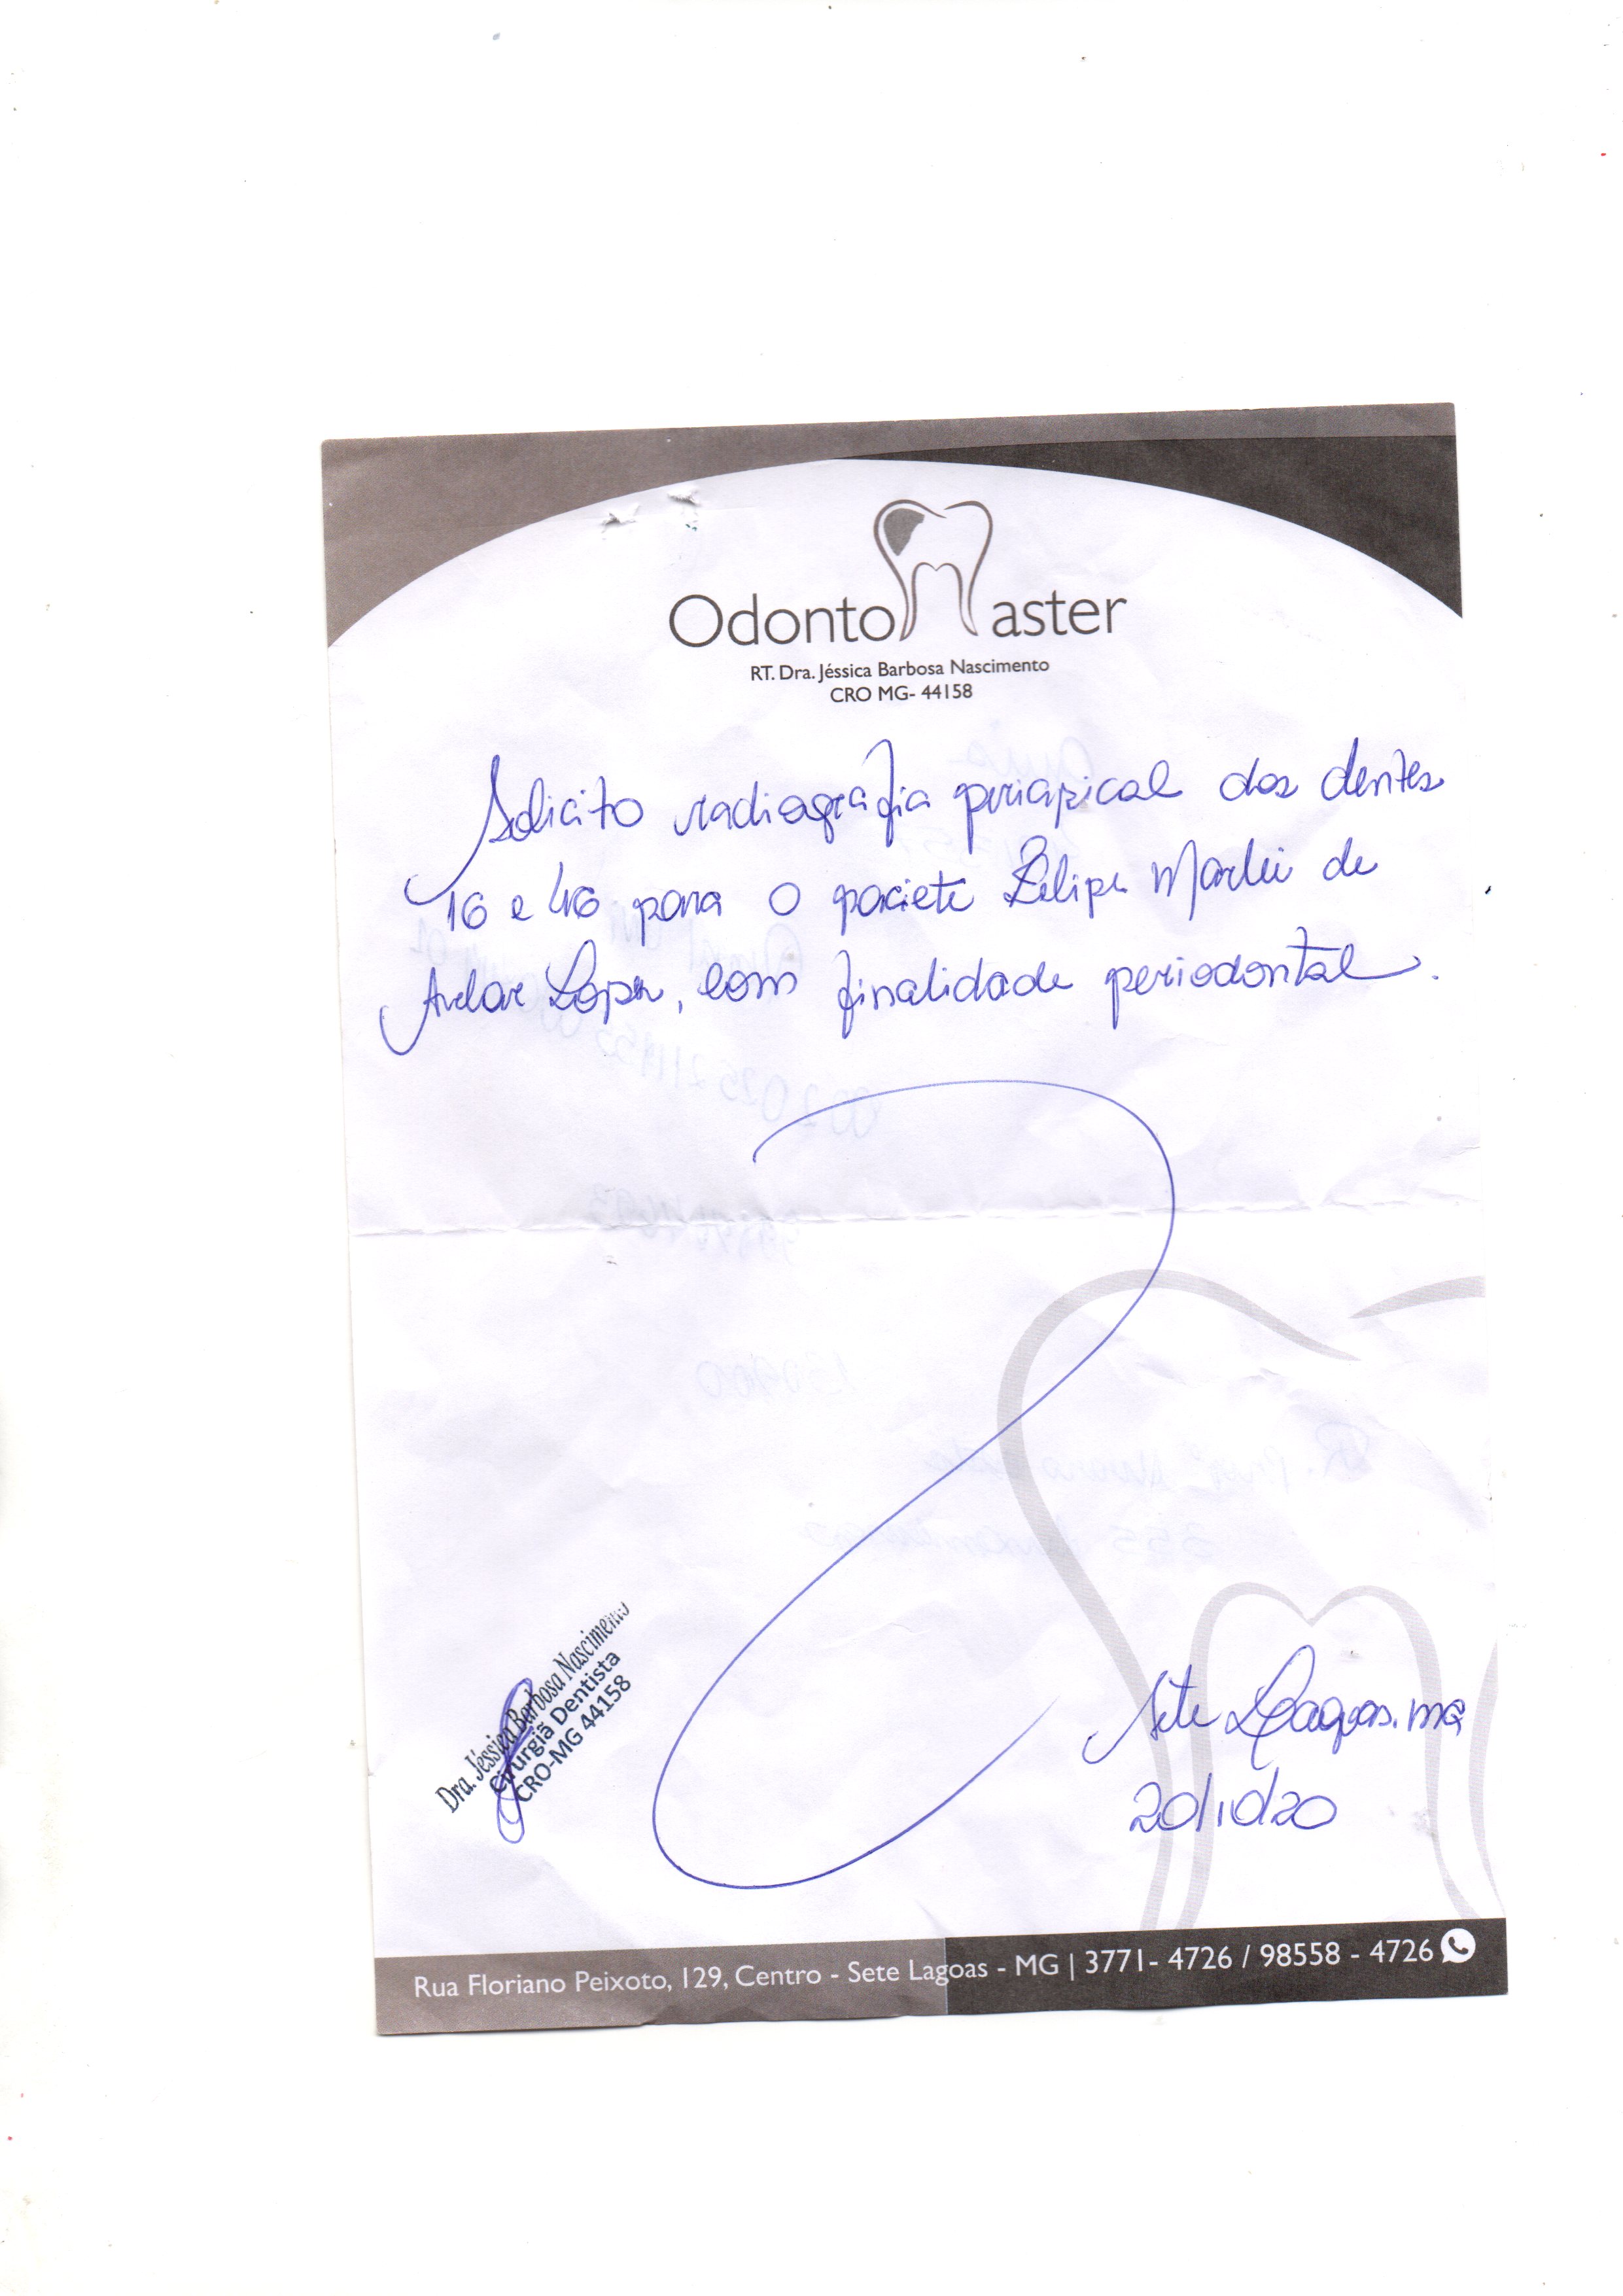 OdontoMaster
RT. Dra. Jéssica Barbosa Nascimento
CRO MG- 44158
Solicito radiografia periapical dos dentes
16 e 46 para o paciete Felipe Marlei de
Avelar Lopes, com finalidade periodontal.
Dra. Jéssica Barbosa Nascimento
Cirurgiã Dentista
CRO-MG 44158
Sete Lagoas. MG
20/10/20
Rua Floriano Peixoto, 129, Centro - Sete Lagoas - MG | 3771- 4726 / 98558 - 4726